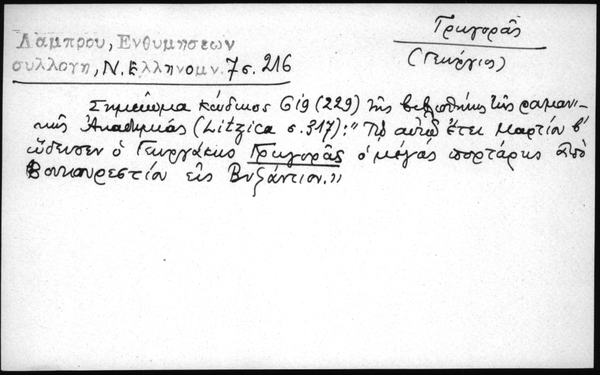 Λάμπρου, Ενθυμήσεων
συλλογη, Ν. Ελληνομν. 7 σ. 216
Γρηγορᾶς
(Γεώργιος)
Σημείωμα κώδικος 619 (229) τῆς βιβλιοθήκης τῆς ρωμανι-
κῆς Ἀκαδημίας (Litzica σ. 317): "Τῷ αὐτῷ ἔτει μαρτίου β΄
ὥδευσεν ὁ Γεωργάκης Γρηγορᾶς ὁ μέγας πορτάρης ἀπὸ
Βουκουρεστίου εἰς Βυζάντιον."